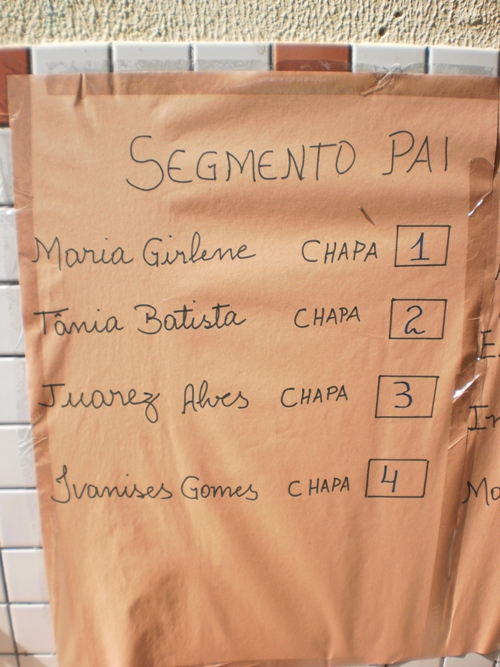 SEGMENTO PAI
Maria Girlene CHAPA 1
Tânia Batista CHAPA 2
Juarez Alves CHAPA 3
Ivanises Gomes CHAPA 4